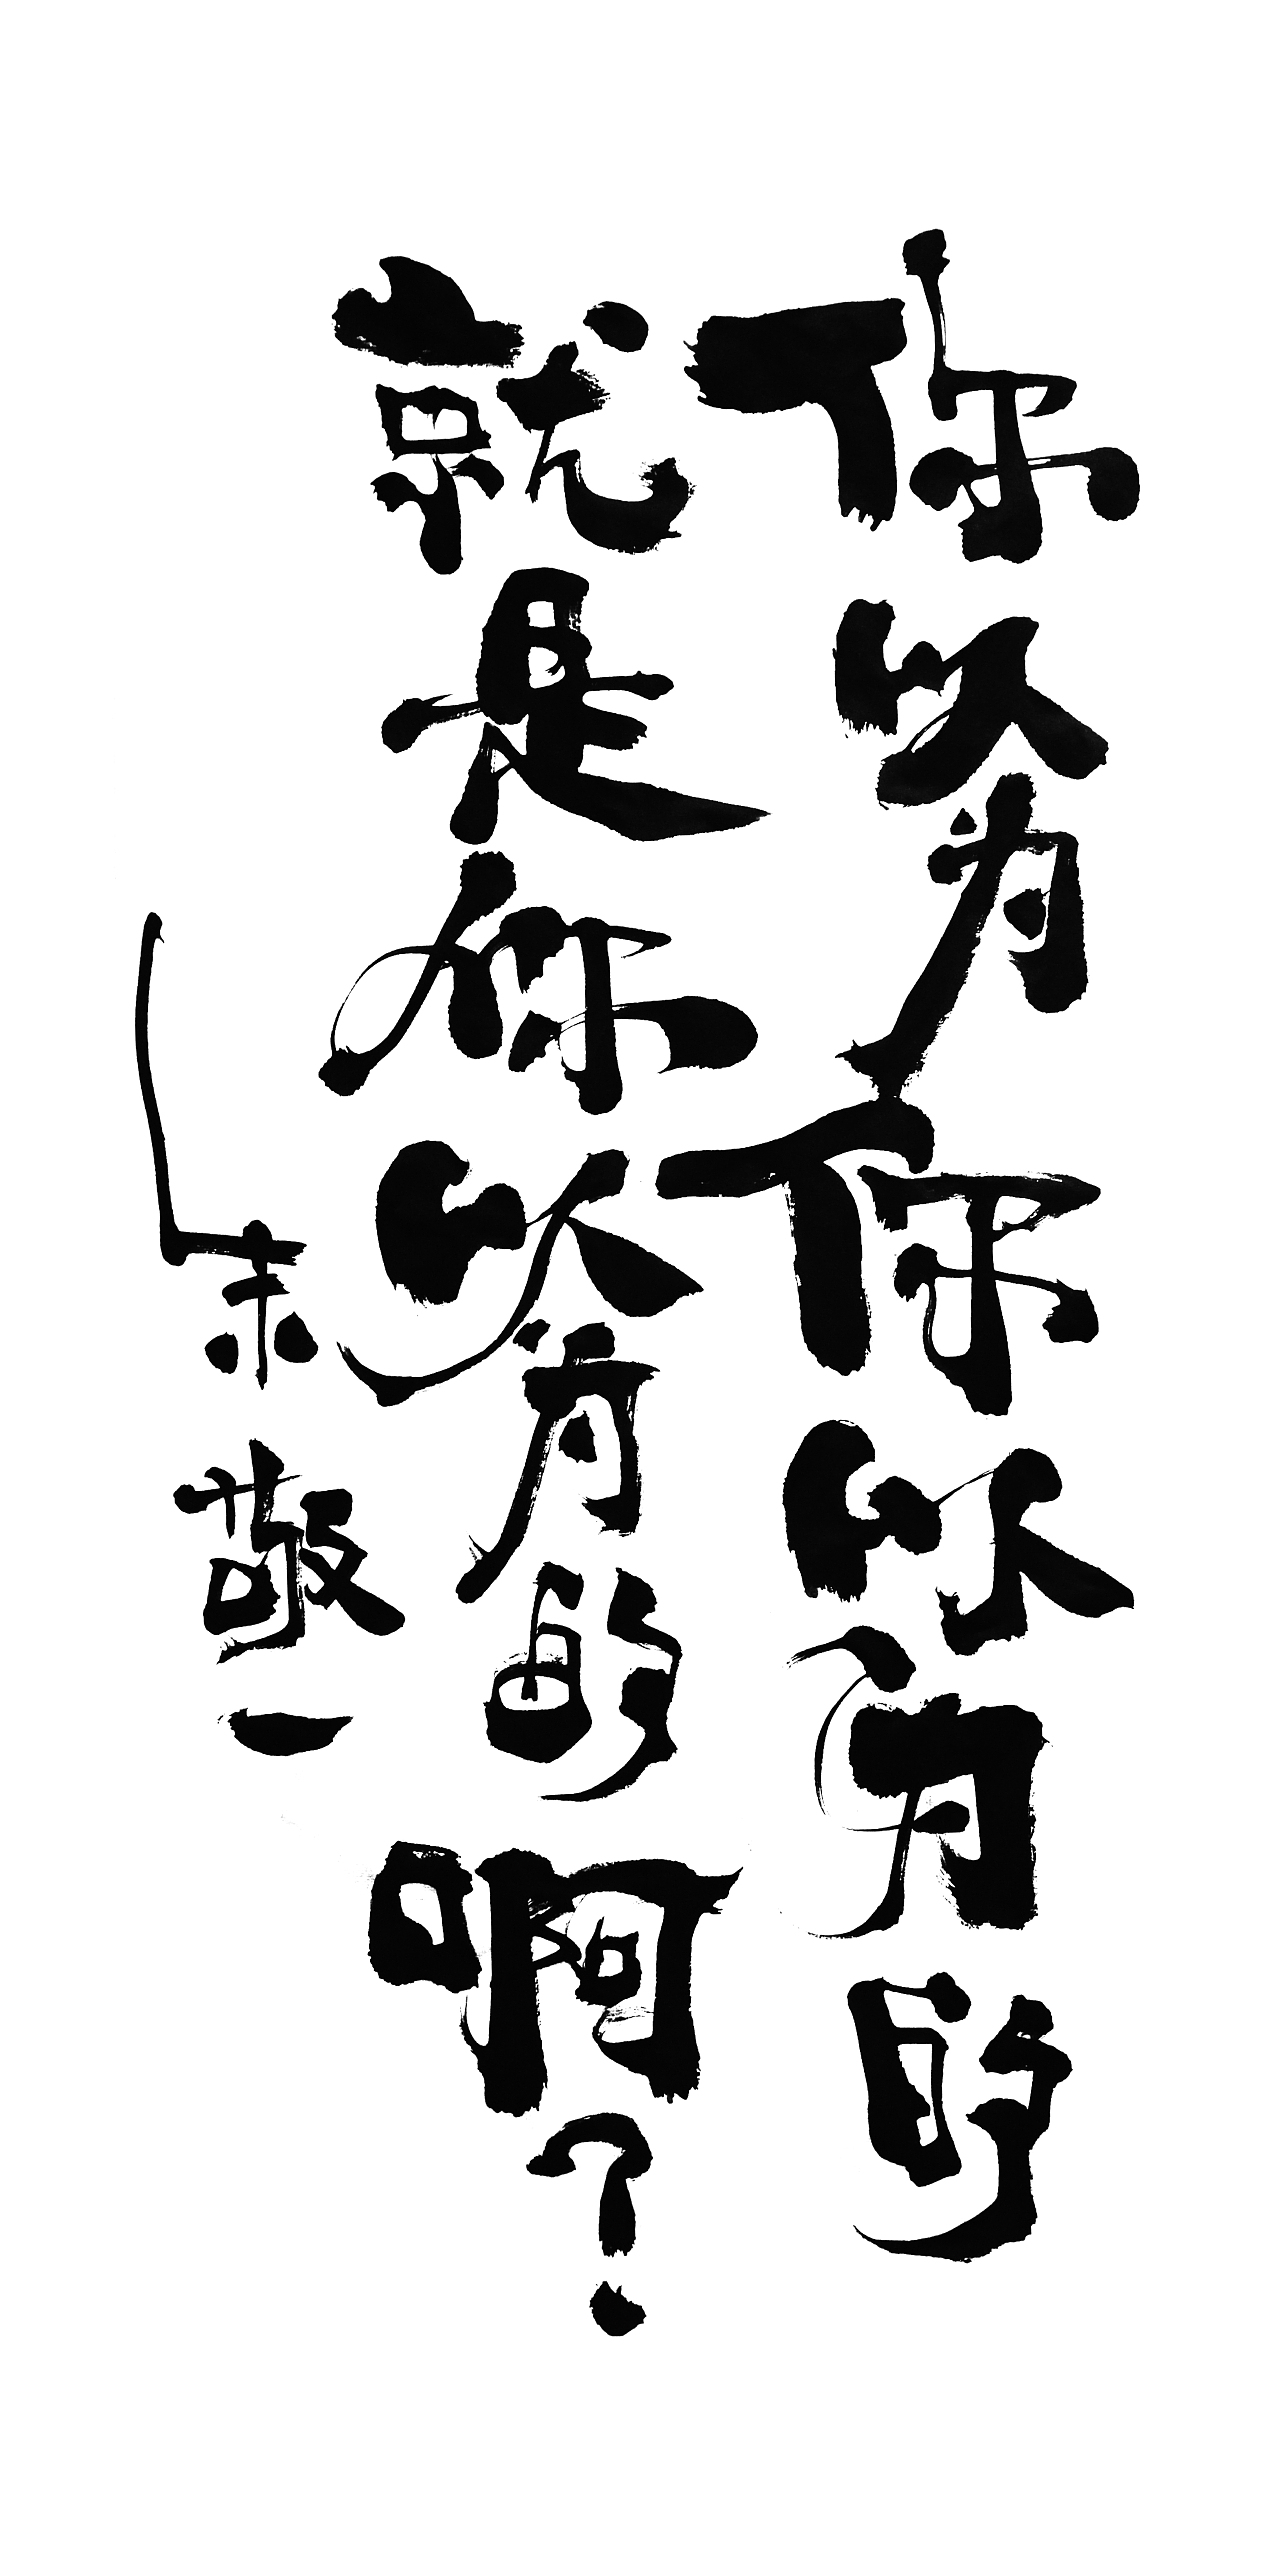 你以为你以为的
就是你以为的啊？
朱敬一